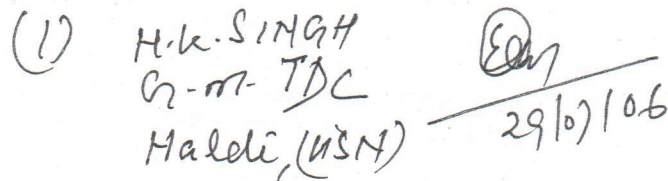 (1) H.K. SINGH
G.M. TDC
Haldi, (USN)
29/07/06